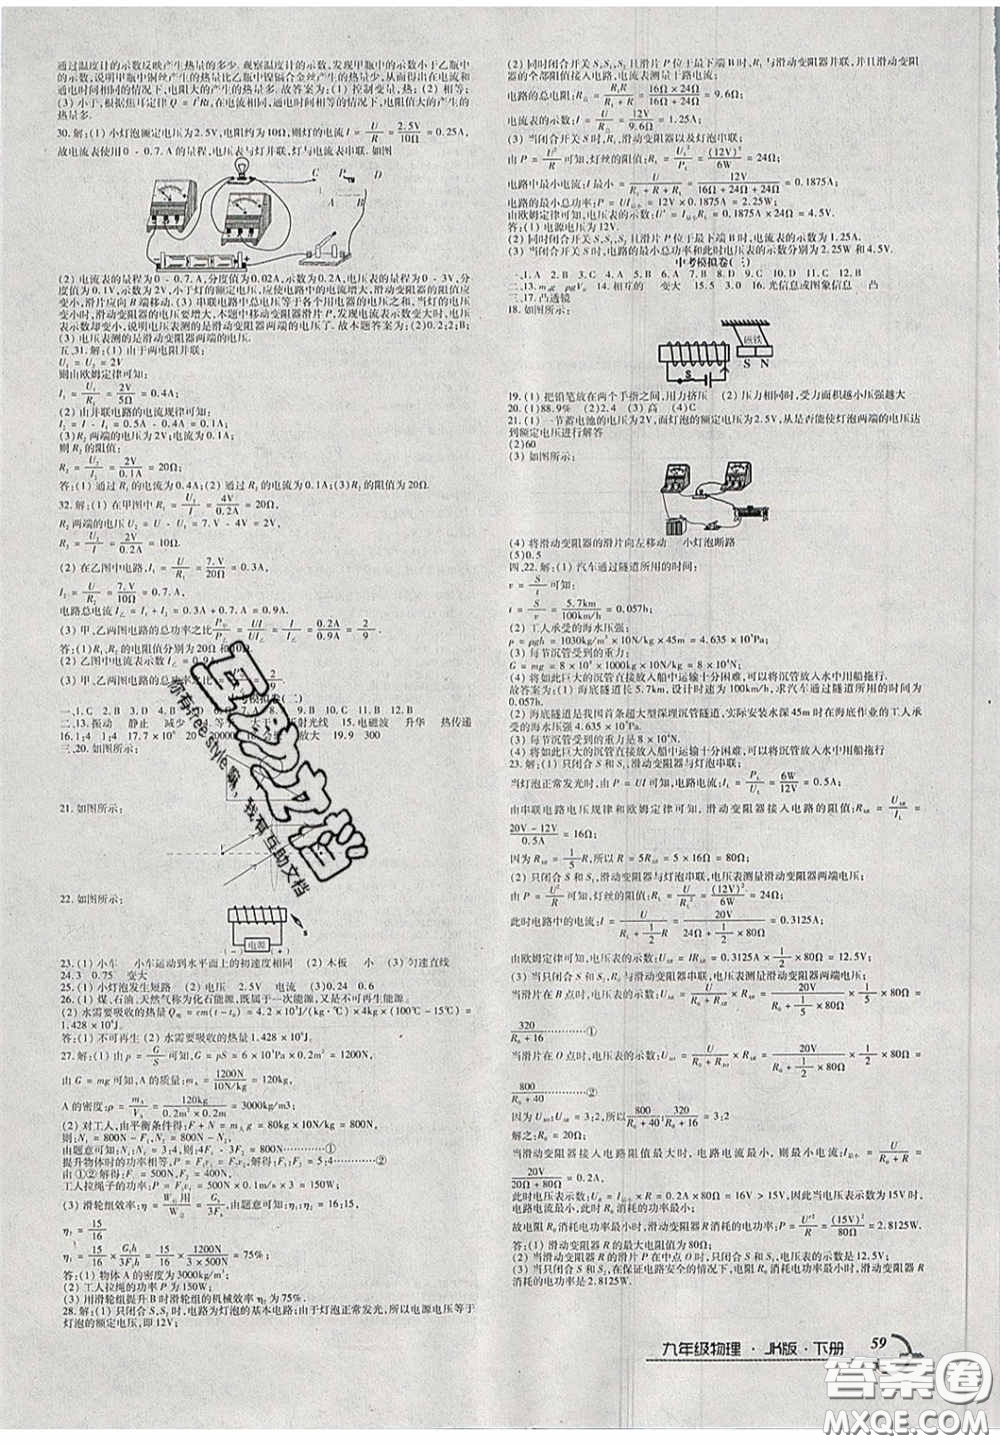 通过温度计的示数反映产生热量的多少. 观察温度计的示数, 发现甲瓶中的示数小于乙瓶中
的示数, 说明甲瓶中铜丝产生的热量比乙瓶中镍镉合金丝产生的热量少, 从而得出在电流和
通电时间相同的情况下, 电阻大的产生的热量多. 故答案为: (1) 控制变量, 热; (2) 乙, 电阻;
(3) 小于, 根据焦耳定律 Q = I²Rt, 在电流相同, 通电时间相同的情况下, 电阻值大的产生的
热量多.
30. 解: (1) 小灯泡额定电压为2.5V, 电阻约为10Ω, 则灯的电流 I = U/R = 2.5V/10Ω = 0.25A,
故电流表使用0 - 0.7. A的量程, 电压表与灯并联, 灯与电流表串联. 如图
C P D
A B
(2) 电流表的量程为0 - 0.7. A, 分度值为0.02A, 示数为0.2A, 电压表的量程为0 - 3V, 分
度值为0.1V, 示数为2V, 小于灯的额定电压, 应使电路中的电流增大, 滑动变阻器的阻值应
变小, 滑片应向B端移动. (3) 串联电路中总电压等于各个用电器的电压之和, 当灯的电压变
小时, 滑动变阻器的电压要增大, 本题中移动变阻器滑片P, 发现电流表示数变大时, 电压
表示数却变小, 说明电压表测的是滑动变阻器的电压了. 故本题答案为: (2)0.2; 2; B; (3)
(3) 电压表测的是滑动变阻器两端的电压.
五、31. 解: (1) 由于两电阻并联:
U₁ = U₂ = 2V
则由欧姆定律可得:
I₁ = U₁/R₁ = 2V/5Ω = 0.4A;
(2) 由并联电路的电流规律可知:
I₂ = I - I₁ = 0.5A - 0.4A = 0.1A;
(3)R₂ 两端的电压为2V, 电流为0.1A;
则R₂ 的阻值:
R₂ = U₂/I₂ = 2V/0.1A = 20Ω;
答: (1) 通过 R₁ 的电流为0.4A; (2) 通过 R₂ 的电流为0.1A; (3)R₂ 的阻值为20Ω.
32. 解: (1) 在甲图中 R₁ = U₁/I = 4V/0.2A = 20Ω,
R₂ 两端的电压为U₂ = U - U₁ = 7. V - 4V = 2V,
R₂ = U₂/I = 2V/0.2A = 10Ω.
(2) 在乙图中电路, I₁ = U/R₁ = 7. V/20Ω = 0.3A,
I₂ = U/R₂ = 7. V/10Ω = 0.7. A,
电路总电流 I乙 = I₁ + I₂ = 0.3A + 0.7. A = 0.9A.
(3) 甲、乙两图电路的总功率之比 P甲/P乙 = UI/UI乙 = I/I乙 = 0.2A/0.9A = 2/9.
答: (1)R₁、R₂ 的阻值分别为20Ω
(2) 乙图中电流表示数 I乙 = 0.9A
(3) 甲、乙两图电路的总功率之比
考模拟卷(二)
二、13. 振动 静止 减少 等于 大于 反射光线 15. 电磁波 升华 热传递
三、20. 如图所示:
21. 如图所示:
22. 如图所示:
电源
(-) (+)
23. (1) 小车 小车运动到水平面上的初速度相同 (2) 木板 小 (3) 匀速直线
24. 3 0.75 变大
25. (1) 小灯泡发生短路 (2) 电压 2.5V 电流 (3) 0.24 0.6
26. (1) 煤、石油、天然气称为化石能源, 既属于一次能源, 又是不可再生能源.
(2) 水需要吸收的热量Q吸 = cm(t - t₀) = 4.2 × 10³J/(kg · ℃) × 4kg × (100℃ - 15℃) =
1.428 × 10⁶J.
答: (1) 不可再生 (2) 水需要吸收的热量 1.428 × 10⁶J.
27. 解: (1) 由 p = G/S 可知, G = pS = 6 × 10³Pa × 0.2m² = 1200N,
由 G = mg 可知, A 的质量: mA = 1200N/10N/kg = 120kg,
A 的密度: ρ = mA/VA = 120kg/0.2m² × 0.2m = 3000kg/m3;
(2) 对工人, 由平衡条件得: F + N = m人g = 80kg × 10N/kg = 800N,
则: N₁ = 800N - F₁, N₂ = 800N - F₂,
由题意可知: N₁ : N₂ = 3 : 4; 4F₁ - 3F₂ = 800N…………①
提升物体时的功率相等, P = F₁v₁ = F₂v₂, 解得: F₁ : F₂ = 5 : 4…………②
由 ①② 解得: F₁ = 500N, F₂ = 400N,
工人拉绳子的功率: P = F₁v₁ = 500N × 0.1m/s × 3 = 150W;
(3) 滑轮组效率: η = W有用/W总 = G/3F, 由题意可知: η₁ : η₂ = 16 : 15,
η₂ = 15/16 η₁ = 15/16 × G₁h/3F₁h = 15/16 × 1200N/3 × 500N = 75%;
答: (1) 物体 A 的密度为3000kg/m3;
(2) 工人拉绳的功率 P 为150W;
(3) 用滑轮组提升B时滑轮组的机械效率 η₂ 为75%.
28. 解: (1) 只闭合 S、S₁ 时, 电路为灯泡的基本电路; 由于灯泡正常发光, 所以电源电压等于
灯泡的额定电压, 即12V;
(2) 同时闭合开关 S、S₁、S₂ 且滑片 P 位于最下端B时, R₁ 与滑动变阻器并联, 并且滑动变阻
器的全部阻值接入电路, 电流表测量干路电流;
电路的总电阻: R总 = R₁R/R₁ + R = 16Ω × 24Ω/16Ω + 24Ω = 9.6Ω;
电流表的示数: I = U/R总 = 12V/9.6Ω = 1.25A;
(3) 当闭合开关 S 时, 滑动变阻器以及灯泡串联;
由 P = U²/R 可知, 灯丝的阻值: RL = U²/PL = (12V)²/6W = 24Ω;
电路中最小电流: I最小 = U/R₁ + R + RL = 12V/16Ω + 24Ω + 24Ω = 0.1875A;
电路的最小总功率: P = UI最小 = 12V × 0.1875A = 2.25W;
由欧姆定律可知, 电压表的示数: U' = I最小R = 0.1875A × 24Ω = 4.5V.
答: (1) 电源电压为12V.
(2) 同时闭合开关 S、S₁、S₂ 且滑片 P 位于最下端B时, 电流表的示数为1.25A.
(3) 当闭合开关S时, 电路的最小总功率和此时电压表的示数分别为2.25W 和4.5V.
中考模拟卷(三)
一、1. A 2. A 3. B 4. B 5. C 6. A 7. B 8. D 9. D 10. C 11. D 12. C
二、13. mg ρgV₀ 14. 相互的 不变 变大 15. 5 3.0 16. 光信息或图象信息 凸
三、17. 凸透镜
18. 如图所示:
磁铁
S
S N
19. (1) 把铅笔放在两个手指之间, 用力挤压 (2) 压力相同时, 受力面积越小压强越大
20. (1)88.9% (2)2.4 (3) 高 (4)C
21. (1) 一节蓄电池的电压为2V, 而灯泡的额定电压为2.5V, 从是否能使灯泡两端的电压达
到额定电压进行解答
(2)60
(3) 如图所示:
(4) 将滑动变阻器的滑片向左移动 小灯泡断路
(5)0.5
四、22. 解: (1) 汽车通过隧道所用的时间:
v = S/t 可知:
t = S/v = 5.7km/100km/h = 0.057h;
(2) 工人承受的海水压强:
p = ρgh = 1030kg/m³ × 10N/kg × 45m = 4.635 × 10⁵Pa;
(3) 每节沉管受到的重力:
G = mg = 8 × 10⁴ × 1000kg × 10N/kg = 8 × 10⁸N;
(4) 将如此巨大的沉管直接放入船中运输十分困难, 可以将沉管放入水中用船拖行.
故答案为: (1) 海底隧道长5.7km, 设计时速为100km/h, 求汽车通过海底隧道时间为
0.057h.
(2) 海底隧道是我国首条超大型深埋沉管隧道, 实际安装水深45m 时在海底作业的工人承
受的海水压强为4.635 × 10⁵Pa
(3) 每节沉管受到的重力为8 × 10⁸N.
(4) 将如此巨大的沉管直接放入船中运输十分困难, 可以将沉管放入水中用船拖行
23. 解: (1) 只闭合 S 和 S₁, 滑动变阻器与灯泡串联;
当灯泡正常发光时, 由 P = UI 可知, 电路电流: I = PL/UL = 6W/12V = 0.5A;
由串联电路电压规律和欧姆定律可知, 滑动变阻器接入电路的阻值: RAB = UAB/IL =
20V - 12V/0.5A = 16Ω;
因为 RAB = 1/5 R, 所以 R = 5RAB = 5 × 16Ω = 80Ω;
(2) 只闭合 S 和 S₁, 滑动变阻器与灯泡串联, 电压表测量滑动变阻器两端电压;
由 P = U²/R 可知, 灯丝的阻值: RL = U²/PL = (12V)²/6W = 24Ω;
此时电路中的电流: I = U/RL + 1/2 R = 20V/24Ω + 1/2 × 80Ω = 0.3125A;
由欧姆定律可知, 电压表的示数: U = IRAB = 0.3125A × 1/2 × 80Ω = 12.5V;
(3) 当只闭合开关S和S₂ 时, R₀ 与滑动变阻器串联, 电压表测量滑动变阻器两端电压;
当滑片在 B 点时, 电压表的示数: UAB = U/R₀ + RAB × RAB = 20V/R₀ + 1/5 × 80Ω × 1/5 × 80Ω =
320/R₀ + 16…………①
当滑片在 O 点时, 电压表的示数: = 20V/R₀ + 1/2 × 80Ω × 1/2 × 80Ω =
800/R₀ + 40…………②
解之: R₀ = 20Ω;
当滑动变阻器接入电路阻值最大时, 电路电流最小, 则最小电流: I最小 = U/R₀ + R =
20V/20Ω + 80Ω = 0.2A;
此时电压表示数: UR = I最小 × R = 0.2A × 80Ω = 16V > 15V, 因此当电压表示数为15V 时,
电路电流最小, 此时 R₀ 消耗的电功率最小.
故电阻 R₀ 消耗电功率最小时, 滑动变阻器R消耗的电功率: P = U'²/R = (15V)²/80Ω = 2.8125W.
答: (1) 滑动变阻器 R 的最大电阻值为80Ω;
(2) 当滑动变阻器的滑片 P 在中点 O 时, 只闭合 S 和 S₁, 电压表的示数为12.5V.
(3) 当只闭合 S 和S₂, 在保证电路安全的情况下, 电阻 R₀ 消耗的电功率最小时, 滑动变阻器 R
消耗的电功率是2.8125W.
你有free style嘛,
豆丁文档
我有互助文档
九年级物理 · JK版 · 下册
59
答案圈
MXQE.COM